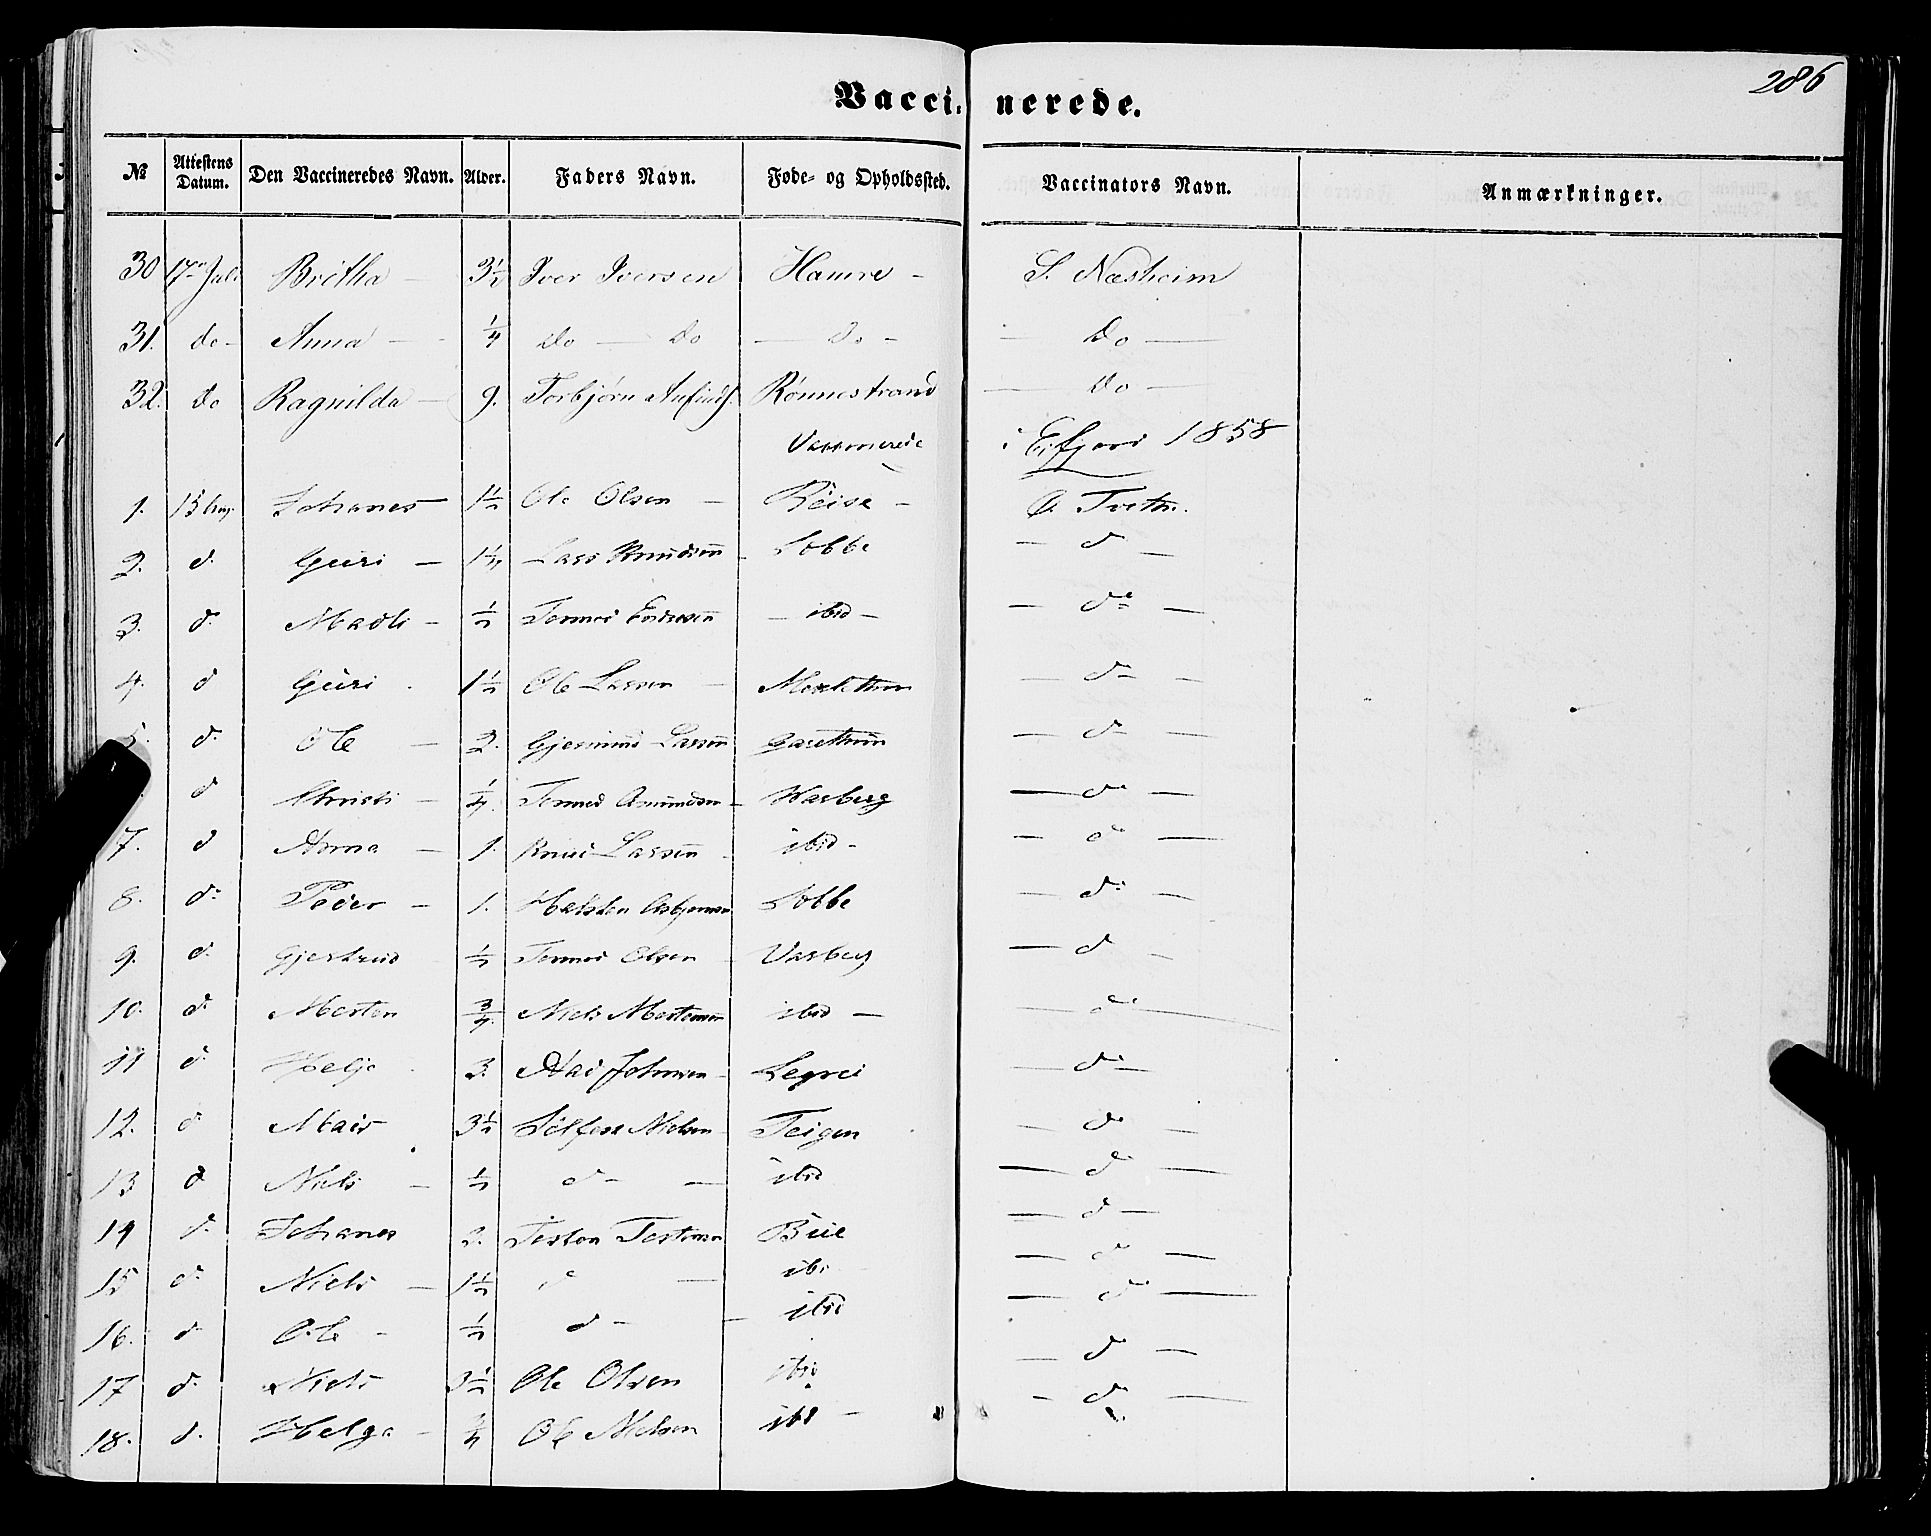 286
Vaccinerede.
№ Attestens Datum. Den Vaccineredes Navn. Alder. Faders Navn. Føde- og Opholdssted. Vaccinators Navn. Anmærkninger.
30 17de Juli Britha — 3½ Iver Iversen Hamre — S. Næsheim
31. do — Anna — ¼ do — do — do — — do —
32. do Ragnilda — 9. Torbjørn Rønnestrand — do —
Vaccinerede i Eifjord 1858
1. 15 Aug. Johanes 1½ Ole Olsen — Reise — O. Tveten.
2. d. Guri — Lars Knudsen — Løbbe — d —
3. d. Madli — ½ — ibid — — do —
4. d Guri 1½ Ole Larsen — — do —
5. d. Ole — 2. Gjermund Larsen Garethun — do —
d Christi — ¼. Amundsen — Warberg — do —
7. d Anna — 1. Knud Larsen — ibid — — do —
8. do Peder — 1. Halsten Løbbe — do —
9. d. Gjertrud ½ Olsen Varberg — d —
10. d. Morten ¾. Niels Mortensen ibid — — do —
11 d. Helje 3. Johnsen — Legrei — do —
12. d. Mari 3½ Nielsen — Teigen — do —
13 d Niels — ½ d — — ibid — do —
14 d. Johanes 2. Torsten Torstensen — d —
15 d. Niels — 1½ d — ibi — do —
16. d. Ole — ½ d — — ibid — do —
17 d. Niels 3½ Ole Olsen ibid — do —
18. d. Helga — ¾ Ole Nielsen ibd — — do —